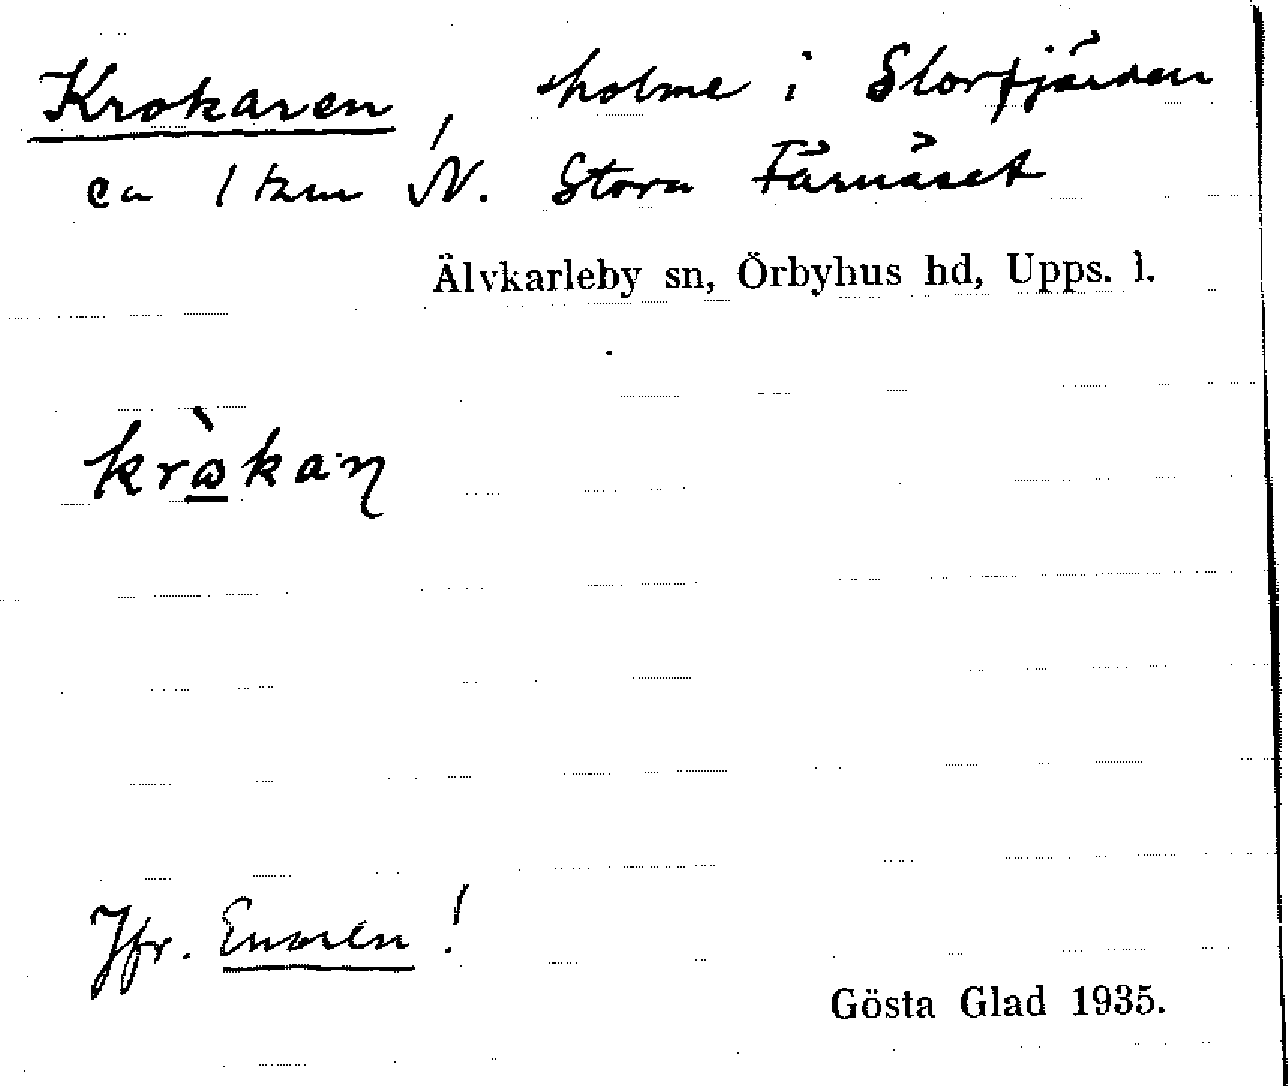 Krokaren, holme i Storfjärden
ca 1 km N. Stora Fårnäset
Älvkarleby sn, Örbyhus hd, Upps. l.
krὼkaꞏn
Jfr. Enaren!
Gösta Glad 1935.